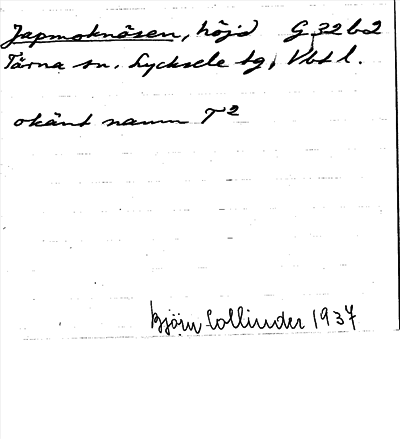 Japmoknåsen, höjd G 32 b 2
Tärna sn. Lycksele lg, Vbtl.
okänt namn T2
Björn Collinder 1937